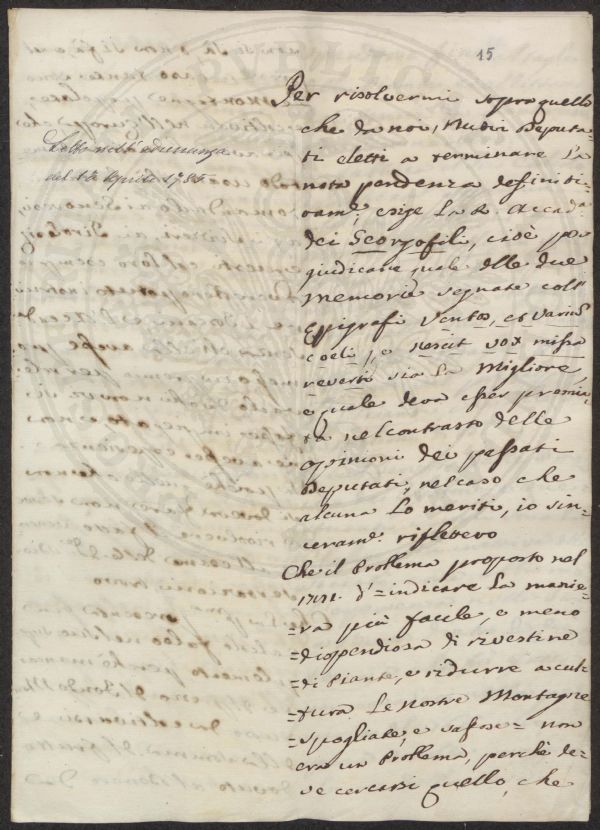 15
Per risolvermi sopra quello
che da noi, Nuovi Deputa-
ti eletti a terminare la
nota pendenza definiti-
vam.e, esige la R. Accad.a
dei Georgofili, cioè per
giudicare quale delle due
memorie segnate coll'
Epigrafi Ventos, et varium
coeli, e nescit vox missa
reverti sia la Migliore,
e quale deva esser premia-
ta nel contrasto delle
opinioni dei passati
Deputati, nel caso che
alcuna lo meriti, io sin-
ceram.e rifletevo
Che il Problema proposto nel
d'indicare la manie-
=ra più facile, e meno
=dispendiosa di rivestire
=di Piante, e ridurre a cul-
=tura le nostre Montagne
=spogliate, e sassose= non
era un Problema, perchè de-
ve cercarsi quello, che
Letta nell'adunanza
del Aprile 1785.